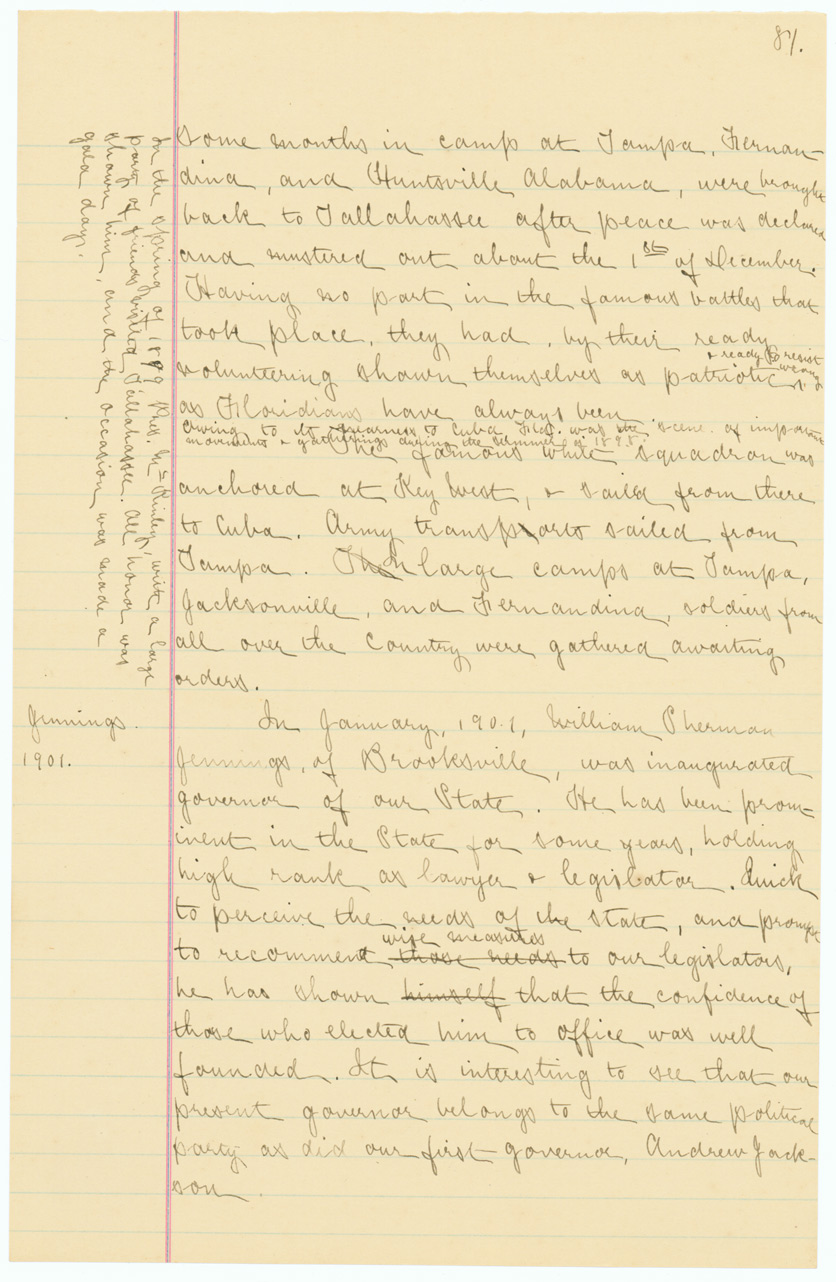 87.
some months in camp at Tampa, Fernan-
dina, and Huntsville Alabama, were brought
back to Tallahassee after peace was declared
and mustered out about the 1st of December.
Having no part in the famous battles that
took place, they had, by their ready
& ready to resist wrong
volunteering shown themselves as patriotic,
as Floridians have always been.
owing to its nearness to Cuba Fla. was the scene of important
movements & gatherings during the summer of 1898.
The famous white squadron was
anchored at Key West, & sailed from there
to Cuba. Army transports sailed from
Tampa. In large camps at Tampa,
Jacksonville, and Fernandina, soldiers from
all over the Country were gathered awaiting
orders.
In the spring of 1899 Pres. McKinley, with a large
party of friends visited Tallahassee. All honor was
shown him, and the occasion was made a
gala day.
Jennings.
1901.
In January, 1901, William Sherman
Jennings, of Brooksville, was inaugurated
governor of our State. He has been prom-
inent in the State for some years, holding
high rank as lawyer & legislator. Quick
to perceive the needs of the state, and prompt
wise measures
to recommend those needs to our legislators,
he has shown himself that the confidence of
those who elected him to office was well
founded. It is interesting to see that our
present governor belongs to the same political
party as did our first governor, Andrew Jack-
son.